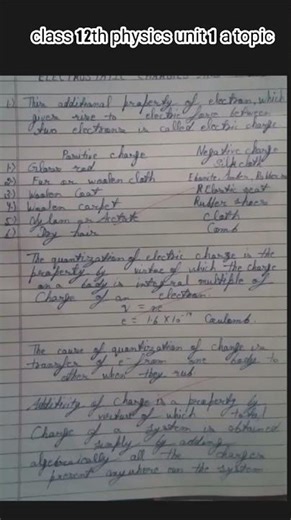 class 12th physics unit 1 a topic
ELECTROSTATIC CHARGES AND
1) This additional property of electron, which
gives rise to electric force between
two electrons is called electric charge
Positive charge Negative charge
1) Glass rod Silk cloth
2) Fur or woolen cloth Ebonite, Amber, Rubber
3) Woolen Coat Plastic seat
4) Woolen carpet Rubber shoes
5) Nylon or Cloth
6) Dry hair Comb
The quantization of electric charge is the
property by virtue of which the charge
on a body is integral multiple of
charge of an electron.
q = ne
e = 1.6 X 10 Coulomb.
The cause of quantization of charge is
transfer of e⁻ from one body to
other when they rub
Additivity of charge is a property by
virtue of which total
Charge of a system is obtained
simply by adding
algebraically all the charges
present anywhere on the system